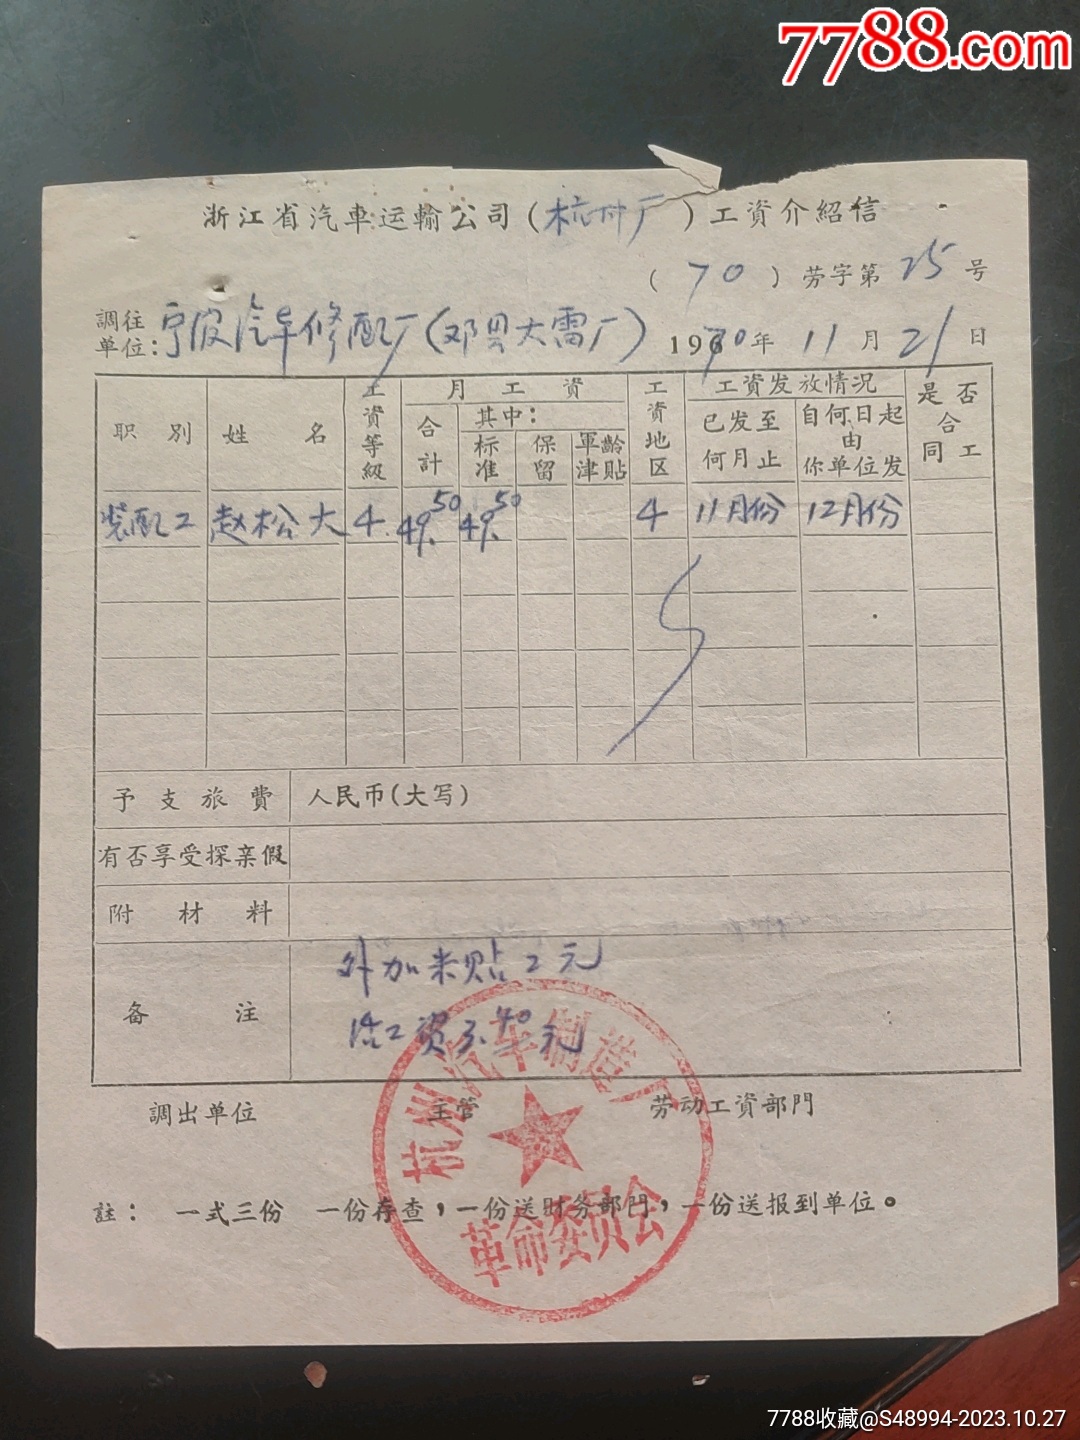 7788.com
浙江省汽車运輸公司(杭州厂)工資介紹信
(70)劳字第25号
調往单位:宁波汽车修配厂(邓县大雷厂) 1970年11月21日
职別 姓名 工資等級 月工資 工資地区 工資发放情况 是否合同工
合計 其中: 已发至何月止 自何日起由你单位发
标准 保留 軍齡津貼
装配工 赵松大 4. 49.50 49.50 4 11月份 12月份
予支旅費 人民币(大写)
有否享受探亲假
附材料
备注 外加米贴2元
工资3.40元
調出单位 主管 劳动工資部門
註: 一式三份 一份存查,一份送財务部門,一份送报到单位。
杭州汽车制造厂
革命委员会
7788收藏@S48994-2023.10.27